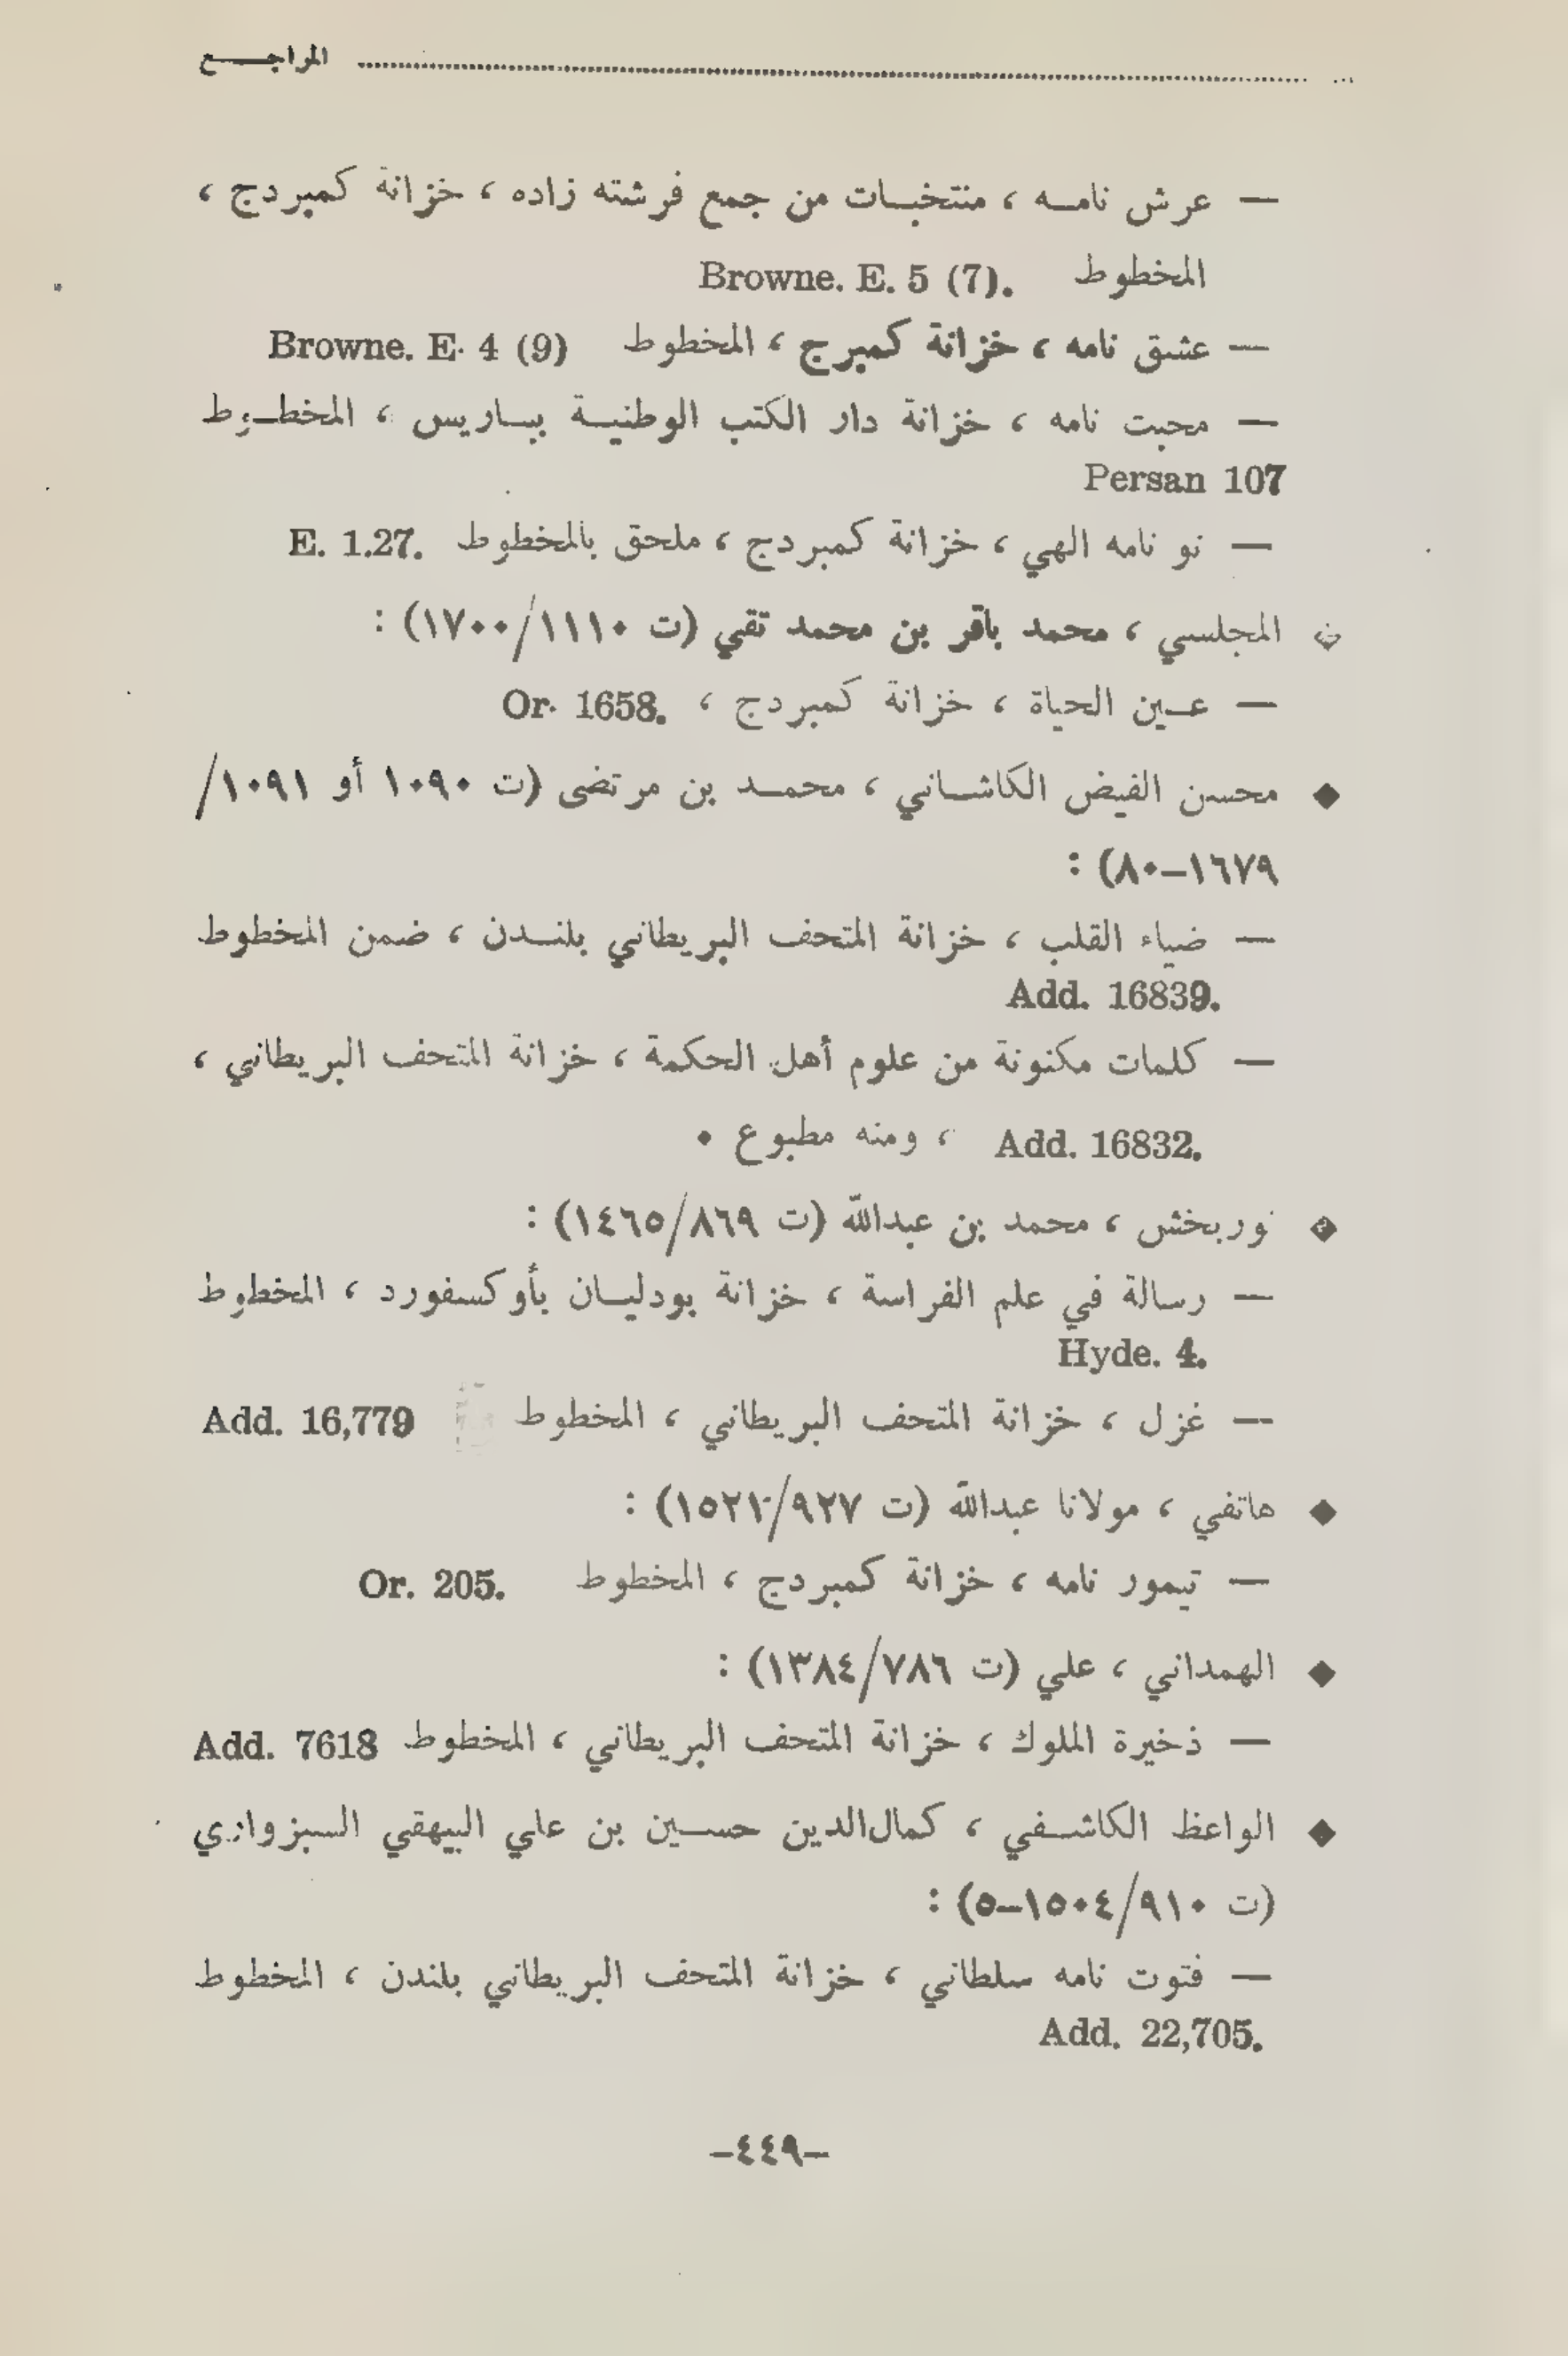 المراجـــع
— عرش نامـه ، منتخبـات من جمع فرشته زاده ، خزانة كمبردج ،
المخطوط Browne. E. 5 (7).
— عشق نامه ، خزانة كمبرج ، المخطوط Browne. E. 4 (9)
— محبت نامه ، خزانة دار الكتب الوطنيـة ببـاريس ، المخطـوط
Persan 107
— نو نامه الهي ، خزانة كمبردج ، ملحق بالمخطوط E. 1.27.
المجلسي ، محمد باقر بن محمد تقي (ت ١١١٠/١٧٠٠) :
— عـين الحياة ، خزانة كمبردج ، Or. 1658.
◆ محسن الفيض الكاشـاني ، محمـد بن مرتضى (ت ١٠٩٠ أو ١٠٩١/
١٦٧٩–٨٠) :
— ضياء القلب ، خزانة المتحف البريطاني بلنـدن ، ضمن المخطوط
Add. 16839.
— كلمات مكنونة من علوم أهل الحكمة ، خزانة المتحف البريطاني ،
Add. 16832. ، ومنه مطبوع ٠
◆ نوربخش ، محمد بن عبدالله (ت ٨٦٩/١٤٦٥) :
— رسالة في علم الفراسة ، خزانة بودليـان بأوكسفورد ، المخطوط
Hyde. 4.
— غزل ، خزانة المتحف البريطاني ، المخطوط Add. 16,779
◆ هاتفي ، مولانا عبدالله (ت ٩٢٧/١٥٢١) :
— تيمور نامه ، خزانة كمبردج ، المخطوط Or. 205.
◆ الهمداني ، علي (ت ٧٨٦/١٣٨٤) :
— ذخيرة الملوك ، خزانة المتحف البريطاني ، المخطوط Add. 7618
◆ الواعظ الكاشـفي ، كمال‌الدين حسـين بن علي البيهقي السبزواري
(ت ٩١٠/١٥٠٤–٥) :
— فتوت نامه سلطاني ، خزانة المتحف البريطاني بلندن ، المخطوط
Add. 22,705.
–٤٤٩–